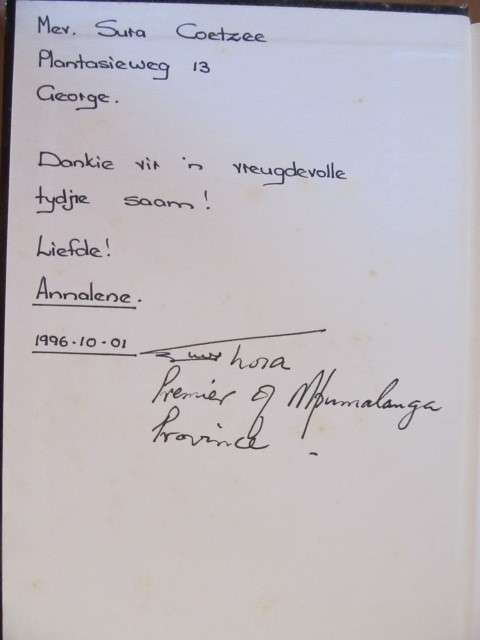 Mev. Suta Coetzee
Plantasieweg 13
George.
Dankie vir 'n vreugdevolle
tydjie saam!
Liefde!
Annalene.
1996-10-01
Premier of Mpumalanga
Province.